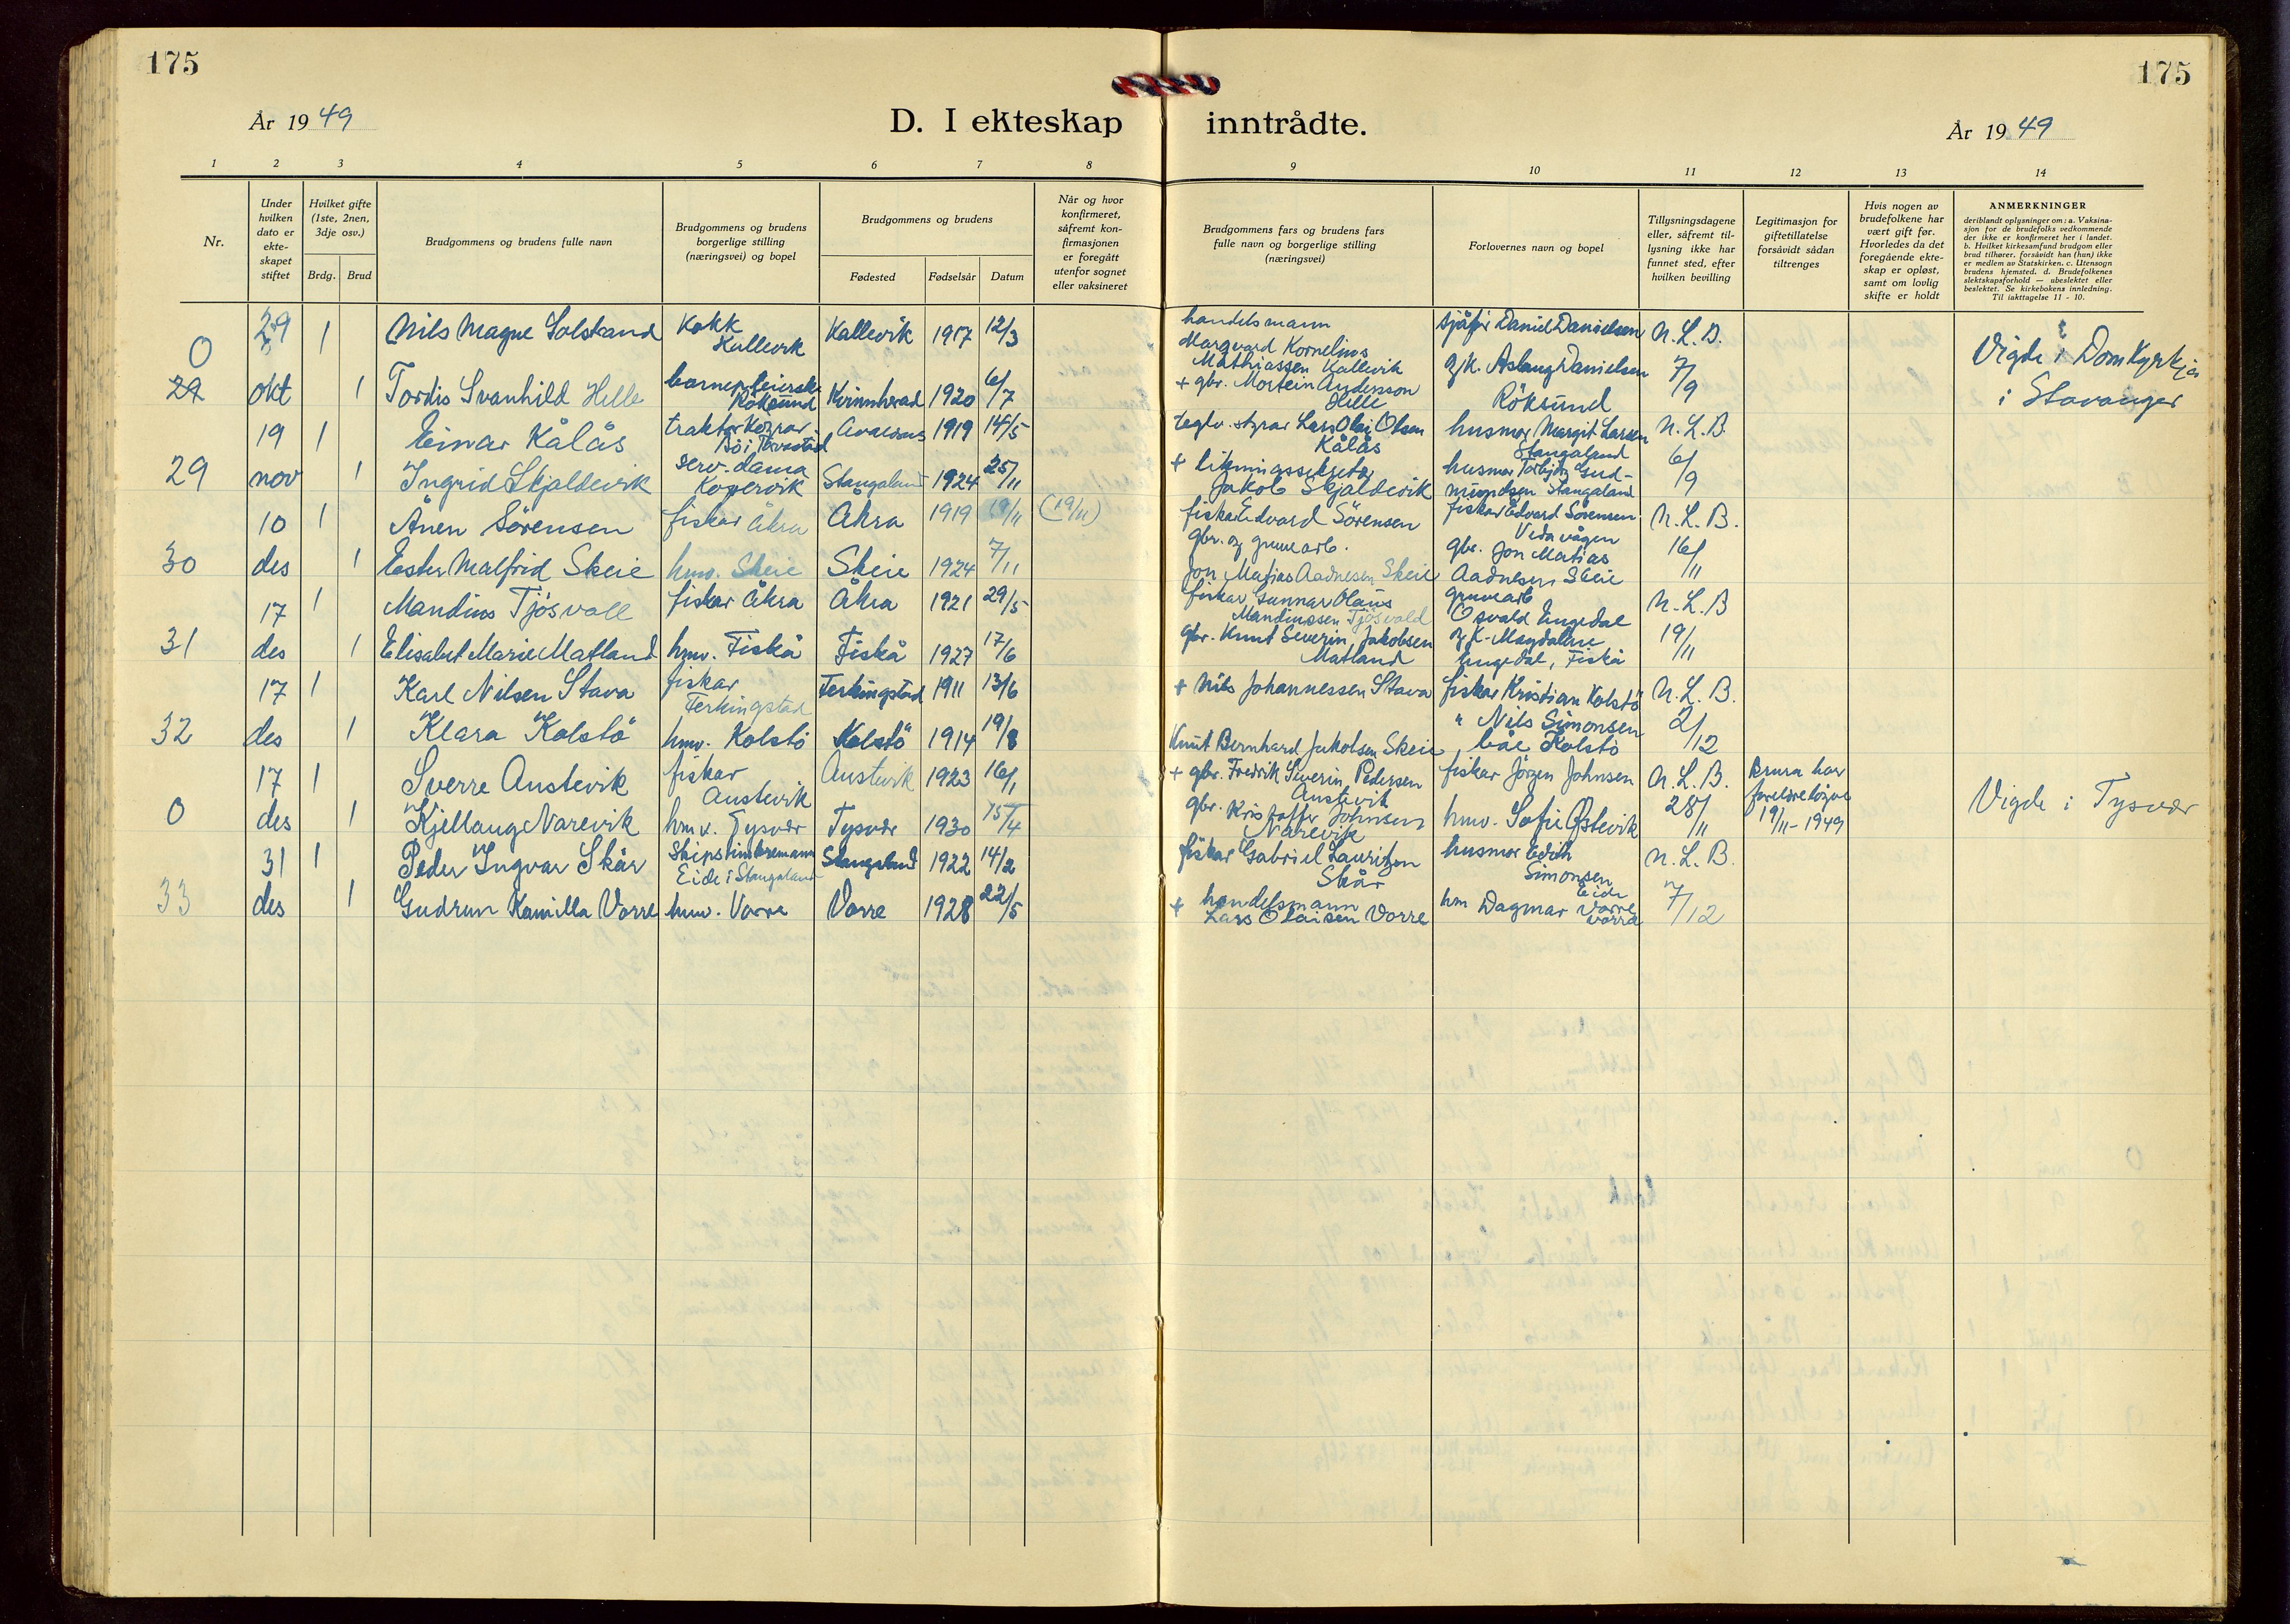 175
175
År 1949
D. I ekteskap inntrådte.
År 1949
1 2 3 4 5 6 7 8 9 10 11 12 13 14
Nr.
Under hvilken dato er ekte-skapet stiftet
Hvilket gifte (1ste, 2nen, 3dje osv.)
Brdg. Brud
Brudgommens og brudens fulle navn
Brudgommens og brudens borgerlige stilling (næringsvei) og bopel
Brudgommens og brudens
Fødested Fødselsår Datum
Når og hvor konfirmeret, såfremt kon-firmasjonen er foregått utenfor sognet eller vaksineret
Brudgommens fars og brudens fars fulle navn og borgerlige stilling (næringsvei)
Forlovernes navn og bopel
Tillysningsdagene eller, såfremt til-lysning ikke har funnet sted, efter hvilken bevilling
Legitimasjon for giftetillatelse forsåvidt sådan tiltrenges
Hvis nogen av brudefolkene har vært gift før. Hvorledes da det foregående ekte-skap er opløst, samt om lovlig skifte er holdt
ANMERKNINGER
deriblandt oplysninger om: a. Vaksina-sjon for de brudefolks vedkommende der ikke er konfirmeret her i landet. b. Hvilket kirkesamfund brudgom eller brud tilhører, forsåvidt han (hun) ikke er medlem av Statskirken. c. Utensogn brudens hjemsted. d. Brudefolkenes slektskapsforhold — ubeslektet eller beslektet. Se kirkebokens innledning. Til iakttagelse 11 - 10.
0 29 1 Nils Magne Solstrand Kokk Kallevik Kallevik 1917 12/3 handelsmann Margvard Kornelius Mathiassen Kallevik sjåfør Daniel Danielsen N.L.B. Vigde i Domkyrkja
okt 1 Tordis Svanhild Hille Röksund Kvinnherad 1920 6/7 + gbr. Mortein Andersson Hille gjk. Aslaug Danielsen Röksund 7/9 i Stavanger
29 19 1 Einar Kålås traktorkøyrar Bö i Torvastad Avaldsnes 1919 14/5 teglv. styrar Lars Olai Olsen Kålås husmor Margit Larsen Stangaland N.L.B.
nov 1 Ingrid Skjaldevik serv.dama Kopervik Stangaland 1924 25/11 + Jakob Skjaldevik husmor Torbjørg Gud-mundsen Stangaland 6/9
30 10 1 Ånen Sörensen fiskar Åkra Åkra 1919 19/11 (19/11) fiskar Edvard Sörensen fiskar Edvard Sörensen Vedavågen N.L.B.
des 1 Ester Malfrid Skeie hmv. Skeie Skeie 1924 7/11 gbr. og gruvearb. Jon Matias Aadnesen Skeie gbr. Jon Matias Aadnesen Skeie 16/11
31 17 1 Mandius Tjösvoll fiskar Åkra Åkra 1921 29/5 fiskar Gunnar Olaus Mandiussen Tjösvold gruvearb Osvald Engedal N.L.B
des 1 Elisabet Marie Matland hmv. Fiskå Fiskå 1927 17/6 gbr. Knut Severin Jakobsen Matland og k. Magdalene Engedal, Fiskå 19/11
32 17 1 Karl Nilsen Stava fiskar Ferkingstad Ferkingstad 1911 13/6 + Nils Johannessen Stava fiskar Kristian Kolstö N.L.B.
des 1 Klara Kolstö hmv. Kolstö Kolstö 1914 19/8 Knut Bernhard Jakobsen Skeie " Nils Simonsen, båe Kolstö 2/12
0 17 1 Sverre Austevik fiskar Austevik Austevik 1923 16/1 + gbr. Fredrik Severin Pedersen Austevik fiskar Jörgen Johnsen N.L.B. Brura har foreldreløyve 19/11-1949 Vigde i Tysvær
des 1 Kjellaug Narevik hmv. Tysvær Tysvær 1930 15/4 gbr. Kristoffer Johnsen Narevik hmv. Sofie Østevik 28/11
33 31 1 Peder Ingvar Skår Skipstimbremann Eide i Stangaland Stangaland 1922 14/2 fiskar Gabriel Lauritzen Skår husmor Edith Simonsen Eide N.L.B.
des 1 Gudrun Kamilla Vorre hmv. Vorre Vorre 1928 22/5 + handelsmann Lars Olaisen Vorre hm Dagmar Vorre Vorre 7/12